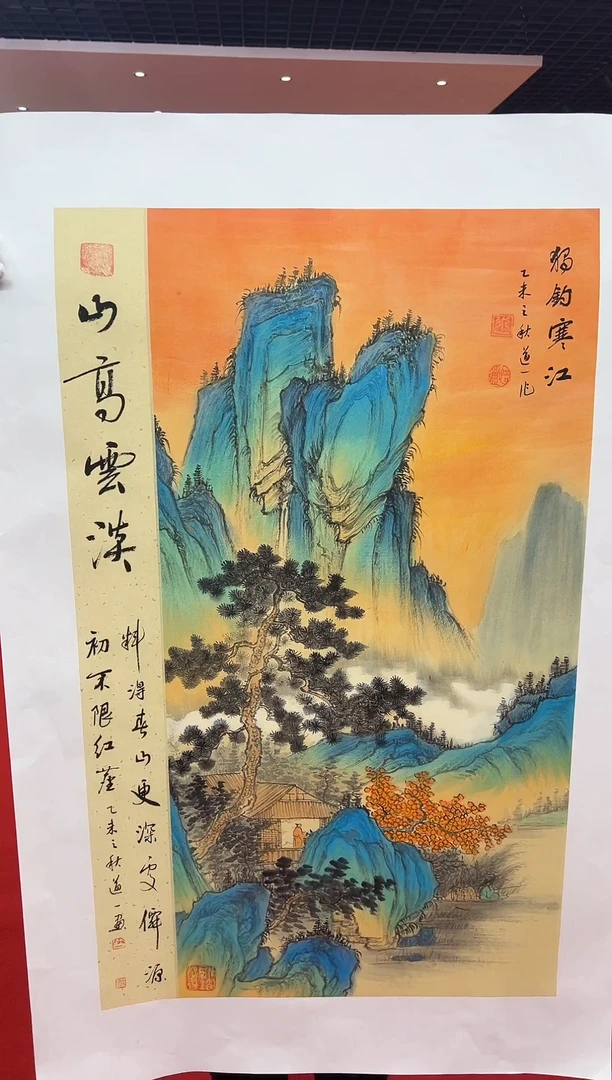 獨釣寒江
乙未之秋道一作
山高雲淡
料得春山更深處僊源
初不限紅塵 乙未之秋道一畫